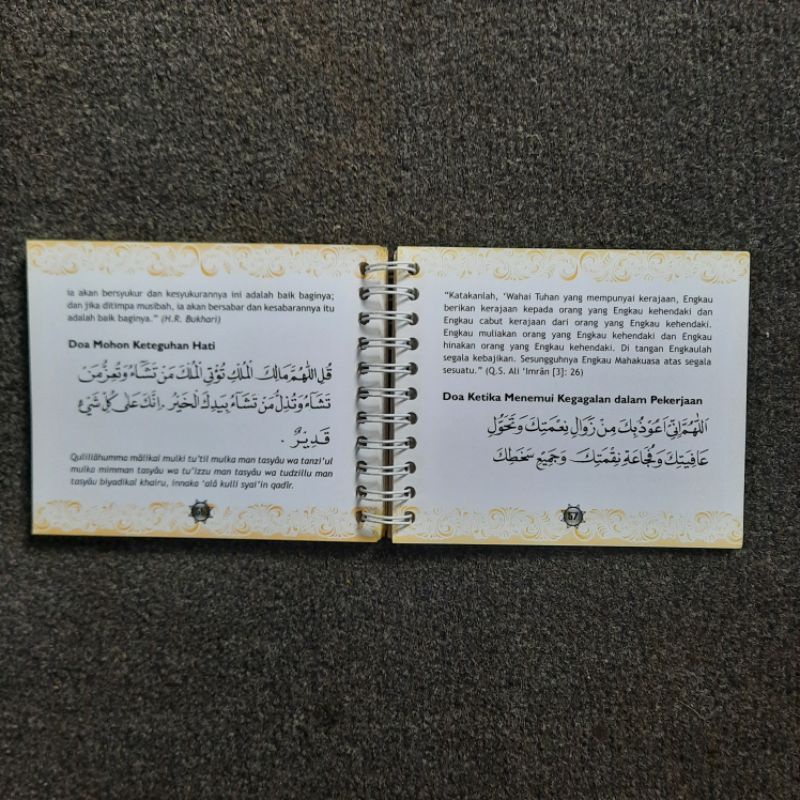 ia akan bersyukur dan kesyukurannya ini adalah baik baginya;
dan jika ditimpa musibah, ia akan bersabar dan kesabarannya itu
adalah baik baginya." (H.R. Bukhari)
Doa Mohon Keteguhan Hati
قُلِ اللّٰهُمَّ مَالِكَ الْمُلْكِ تُؤْتِى الْمُلْكَ مَنْ تَشَآءُ وَتُعِزُّ مَنْ
تَشَآءُ وَتُذِلُّ مَنْ تَشَآءُ بِيَدِكَ الْخَيْرُ. اِنَّكَ عَلٰى كُلِّ شَيْءٍ
قَدِيْرٌ .
Qulillâhumma mâlikal mulki tu'til mulka man tasyâu wa tanzi'ul
mulka mimman tasyâu wa tu'izzu man tasyâu wa tudzillu man
tasyâu biyadikal khairu, innaka 'alâ kulli syai'in qadîr.
"Katakanlah, 'Wahai Tuhan yang mempunyai kerajaan, Engkau
berikan kerajaan kepada orang yang Engkau kehendaki dan
Engkau cabut kerajaan dari orang yang Engkau kehendaki.
Engkau muliakan orang yang Engkau kehendaki dan Engkau
hinakan orang yang Engkau kehendaki. Di tangan Engkaulah
segala kebajikan. Sesungguhnya Engkau Mahakuasa atas segala
sesuatu." (Q.S. Ali 'Imrân [3]: 26)
Doa Ketika Menemui Kegagalan dalam Pekerjaan
اَللّٰهُمَّ اِنِّيْ اَعُوْذُ بِكَ مِنْ زَوَالِ نِعْمَتِكَ وَتَحَوُّلِ
عَافِيَتِكَ وَفُجَاءَةِ نِقْمَتِكَ وَجَمِيْعِ سَخَطِكَ
67